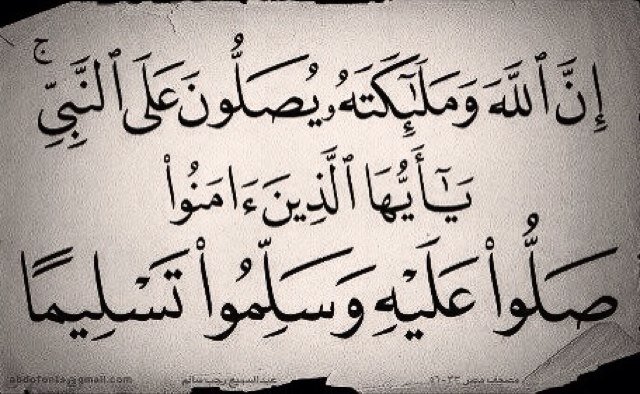 إِنَّ ٱللَّهَ وَمَلَـٰٓئِكَتَهُۥ يُصَلُّونَ عَلَى ٱلنَّبِىِّ ۚ
يَـٰٓأَيُّهَا ٱلَّذِينَ ءَامَنُوا۟
صَلُّوا۟ عَلَيْهِ وَسَلِّمُوا۟ تَسْلِيمًا
عبدالسميع رجب سالم abdofonts@gmail.com